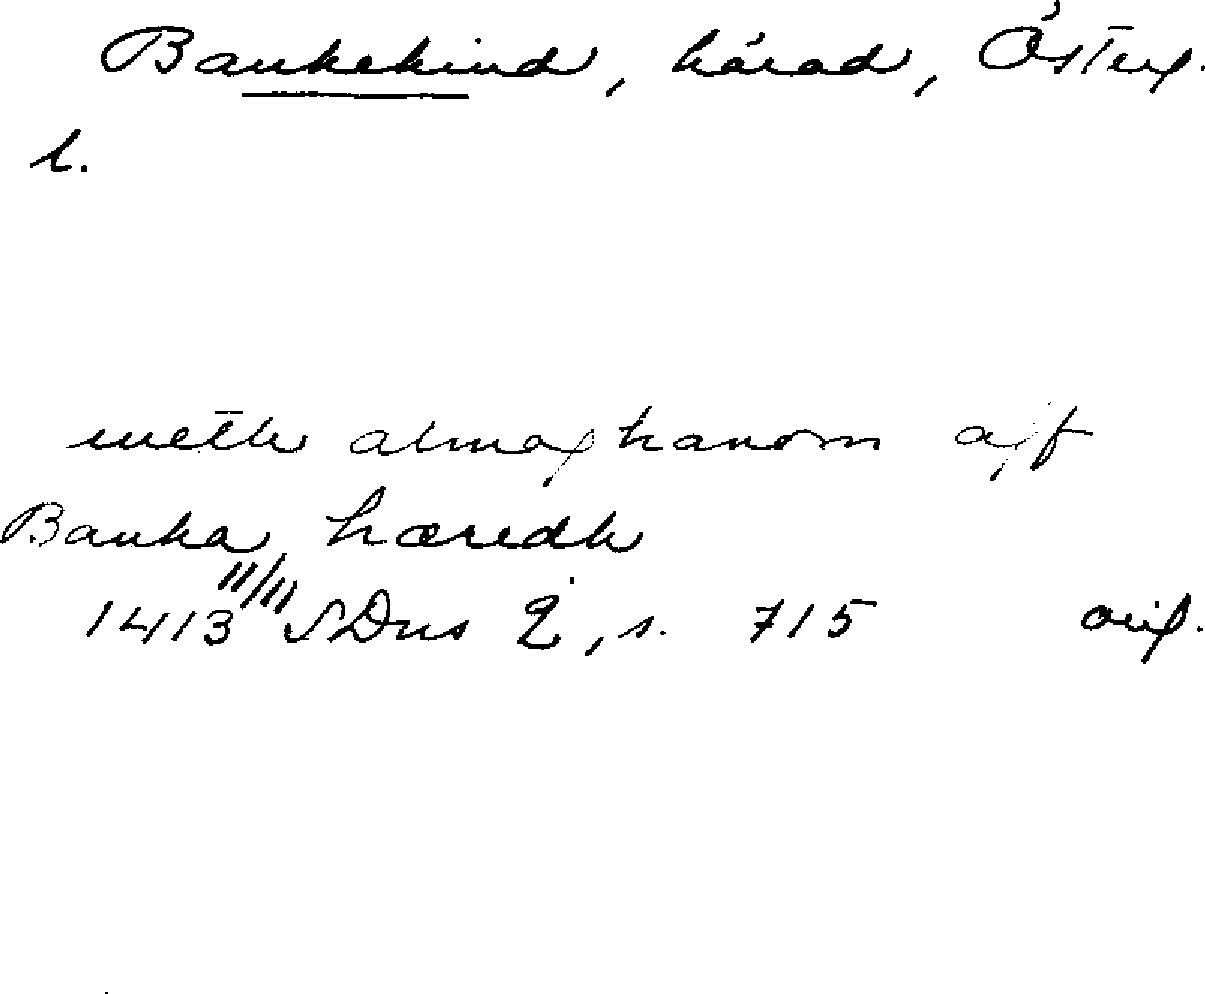 Bankekind, härad, Österg.
l.
meth almoghanom aff
Banka hæredh
1413 11/11 SDns 2, s. 715 orig.